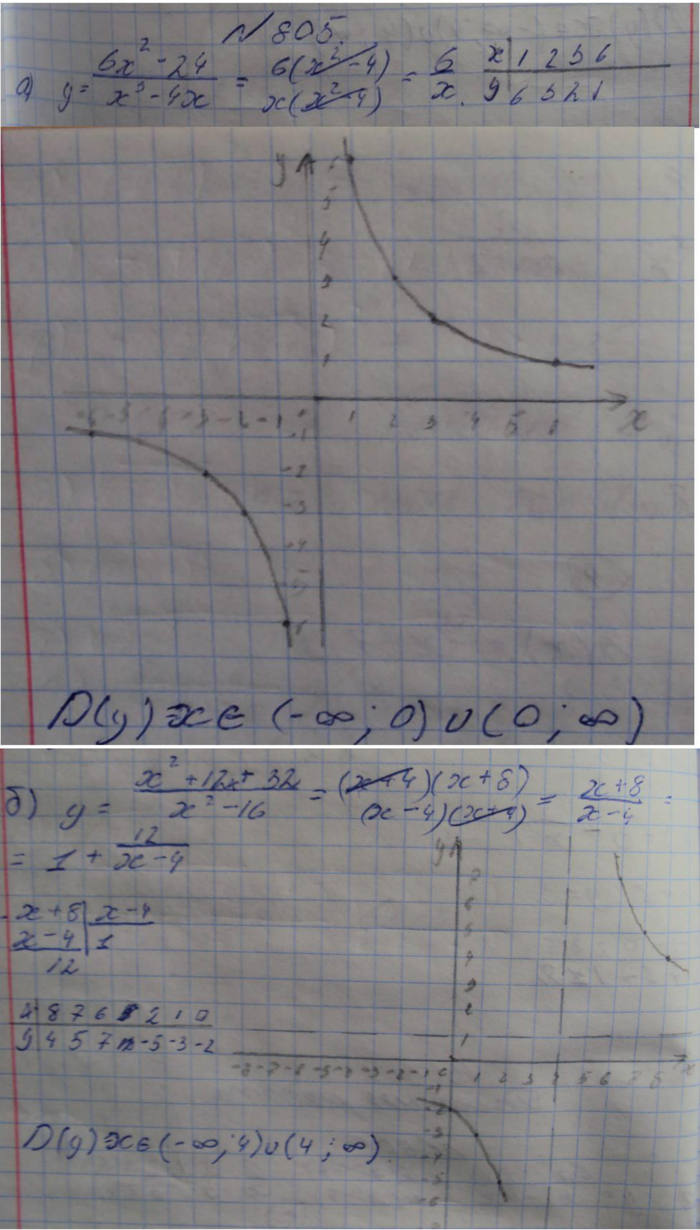 N 805.
а) y = (6x² - 24)/(x³ - 4x) = 6(x² - 4)/x(x² - 4) = 6/x.
x | 1 2 3 6
y | 6 3 2 1
y
5
4
3
2
1
-6 -5 -3 -2 -1 1 2 3 4 5 6 x
-1
-2
-3
-4
-5
D(y) x ∈ (-∞; 0) ∪ (0; ∞)
б) y = (x² + 12x + 32)/(x² - 16) = (x+4)(x+8)/(x-4)(x+4) = (x+8)/(x-4) =
= 1 + 12/(x-4)
x+8 | x-4
x-4 | 1
12
8 7 6 2 1 0
y | 4 5 7 -5 -3 -2
y
7
6
5
4
3
2
1
-8 -7 -6 -5 -4 -3 -2 -1 0 1 2 3 4 5 6 7 8 x
-1
-2
-3
-4
-5
-6
D(y) x ∈ (-∞; 4) ∪ (4; ∞)